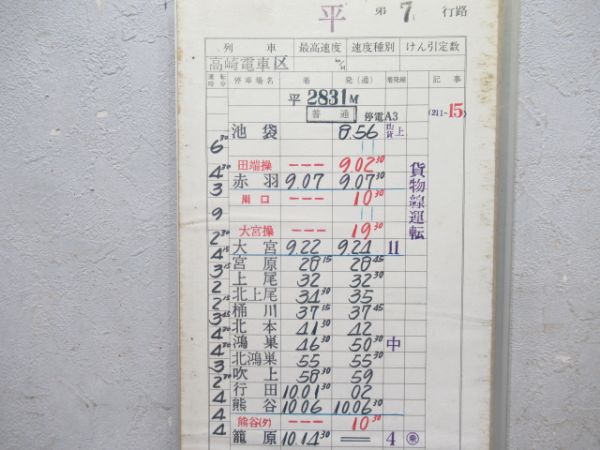 平 第 7 行路
列車 最高速度 速度種別 けん引定数
高崎電車区 km/H
運転時分 停車場名 着 発(通) 着発線 記事
平 2831M
普通 停電A3 (2)1~15
池袋 8.56 山貨上
6 30
田端操 --- 9.02 30
4 30
赤羽 9.07 9.07 30
3
川口 --- 10 30
9
大宮操 --- 19 30
2 30
大宮 9.22 9.24 11
4 15
宮原 28 15 28 45
3 15
上尾 32 32 30
2
北上尾 34 30 35
2 15
桶川 37 15 37 45
3 45
北本 41 30 42
4 30
鴻巣 46 30 50 30 中
4 30
北鴻巣 55 55 30
3
吹上 58 30 59
2 30
行田 10.01 30 02
4
熊谷 10.06 10.06 30
4
熊谷(タ) --- 10 30
4
籠原 10.14 30 4
貨物線運転